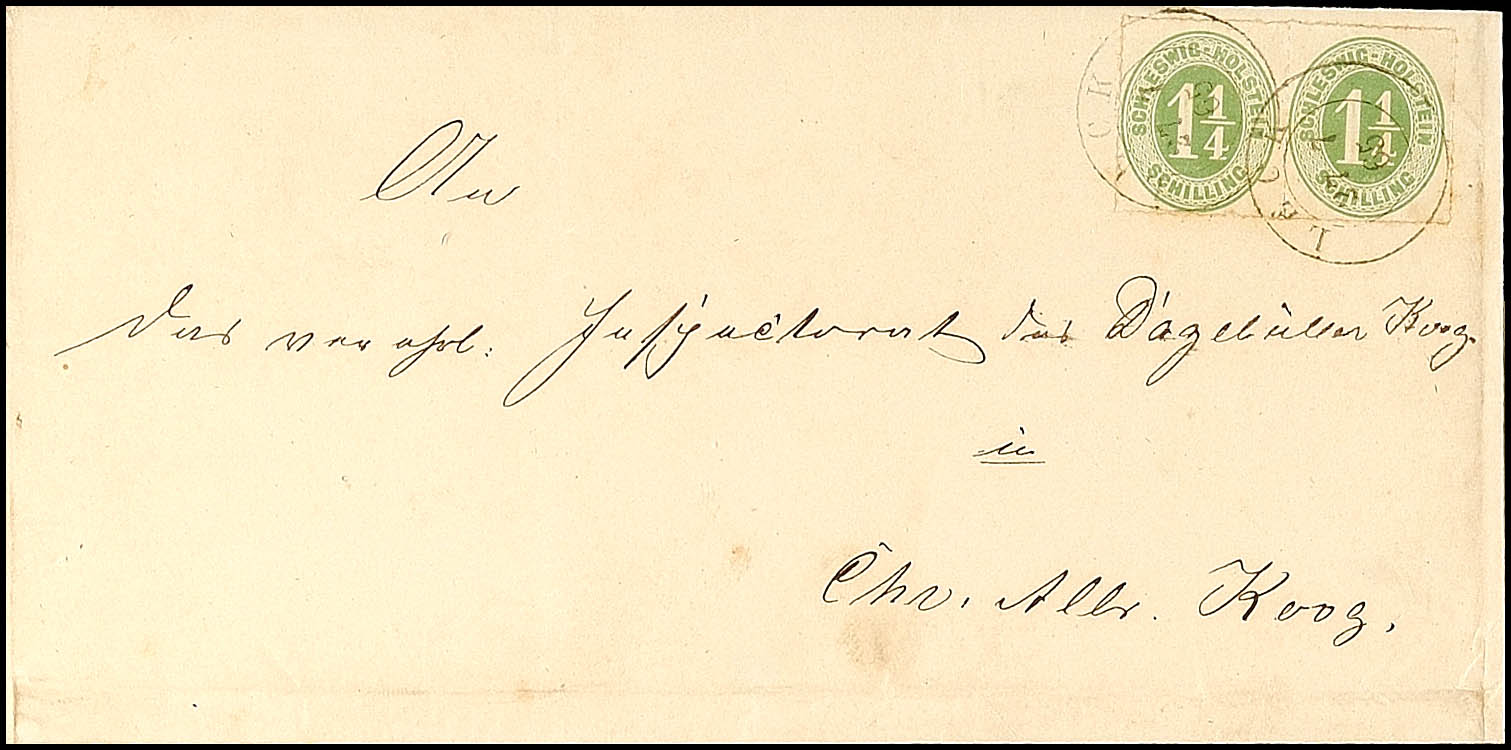 SCHLESWIG-HOLSTEIN SCHLESWIG-HOLSTEIN
1 1/4 1 1/4
SCHILLING SCHILLING
An
das verehrl: Inspectorat des Dagebüller Koog
in
Chr. Albr. Koog.